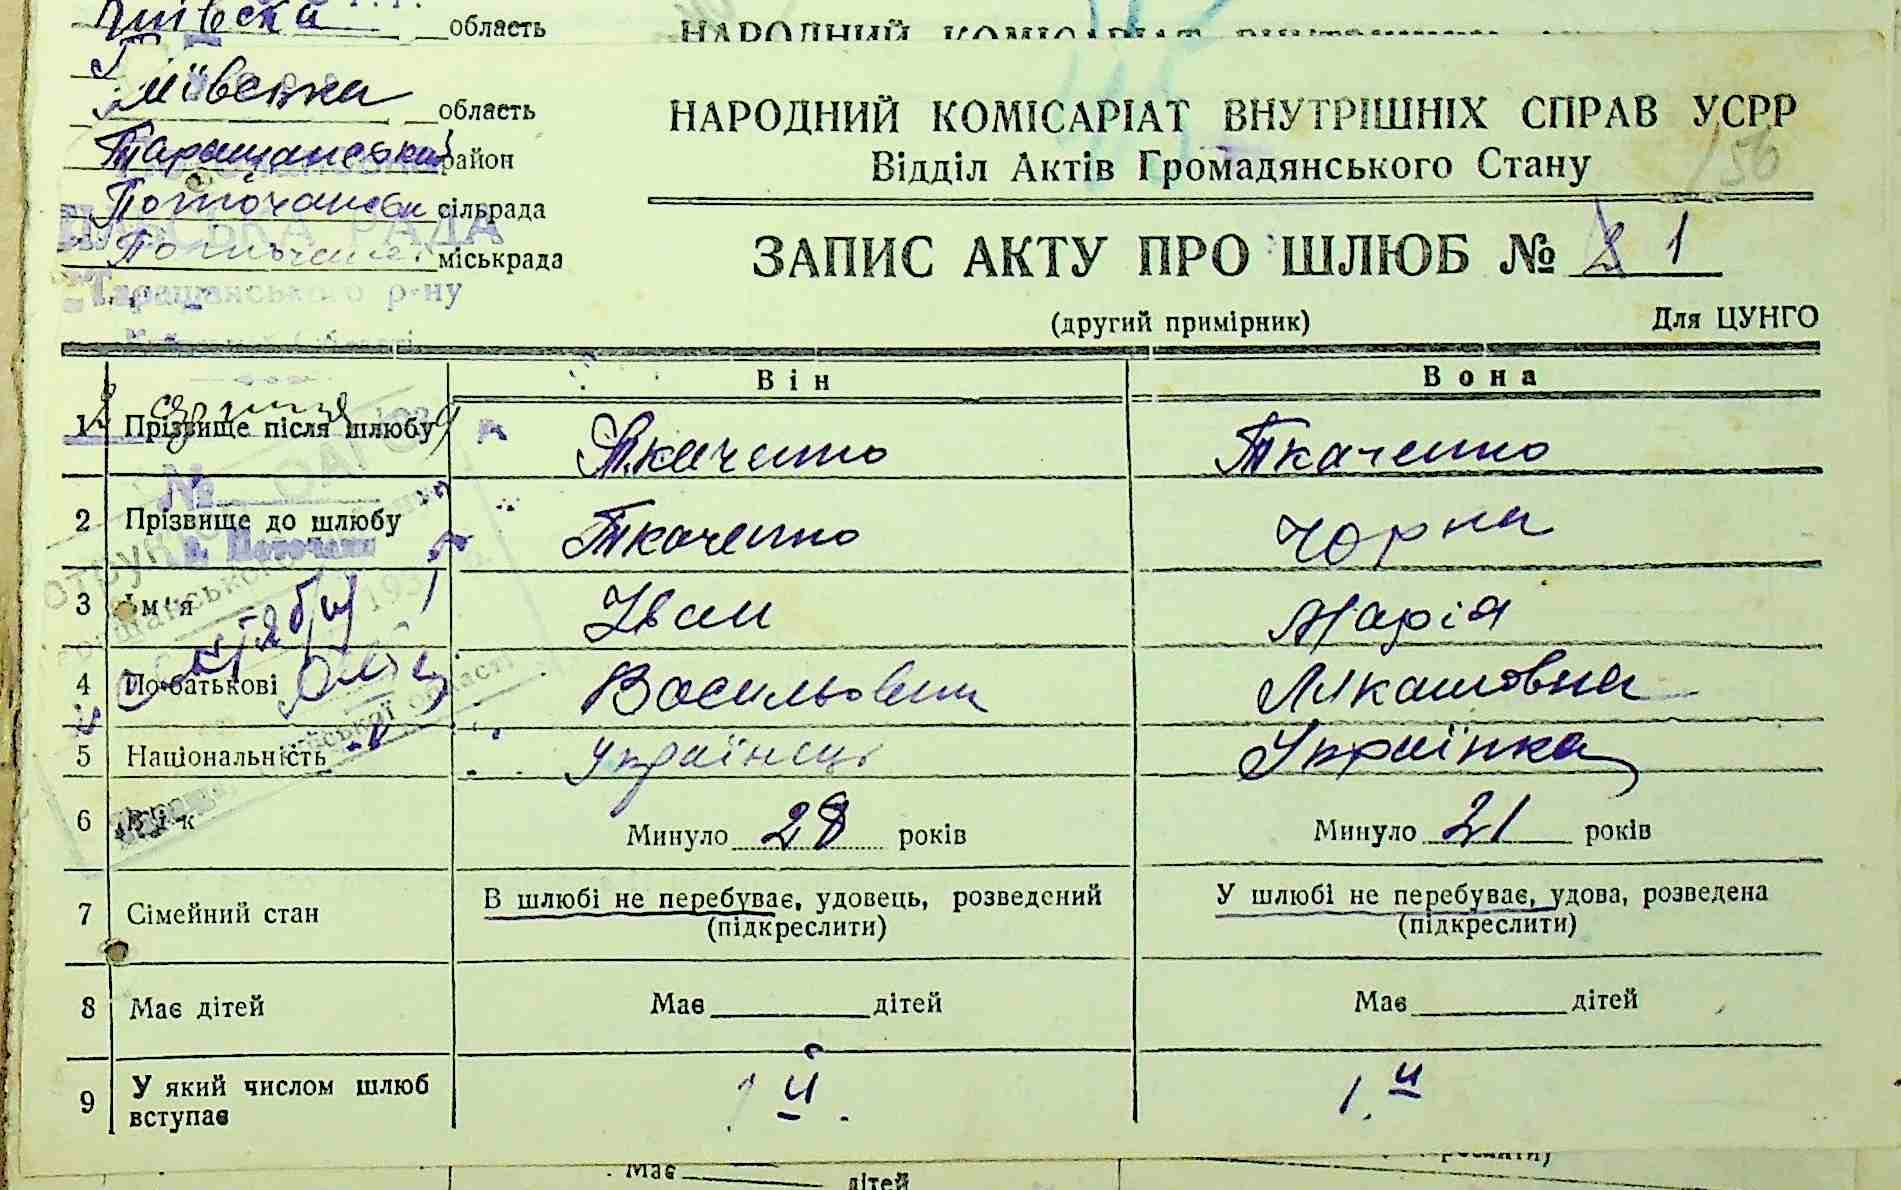 область
НАРОДНИЙ КОМІСАРІАТ
Київська область
Таращанський район
сільрада
міськрада
РАДА
Таращанського р-ну
НАРОДНИЙ КОМІСАРІАТ ВНУТРІШНІХ СПРАВ УСРР
Відділ Актів Громадянського Стану
156
ЗАПИС АКТУ ПРО ШЛЮБ № 1
(другий примірник)
Для ЦУНГО
Він
Вона
1 Прізвище після шлюбу Ткаченко Ткаченко
2 Прізвище до шлюбу Ткаченко Чорна
3 Ім'я Іван Марія
4 По-батькові Васильович Лукашовна
5 Національність Українець Українка
6 Вік Минуло 28 років Минуло 21 років
7 Сімейний стан В шлюбі не перебуває, удовець, розведений У шлюбі не перебуває, удова, розведена
(підкреслити) (підкреслити)
8 Має дітей Має дітей Має дітей
9 У який числом шлюб вступає 1й. 1.й
Має дітей